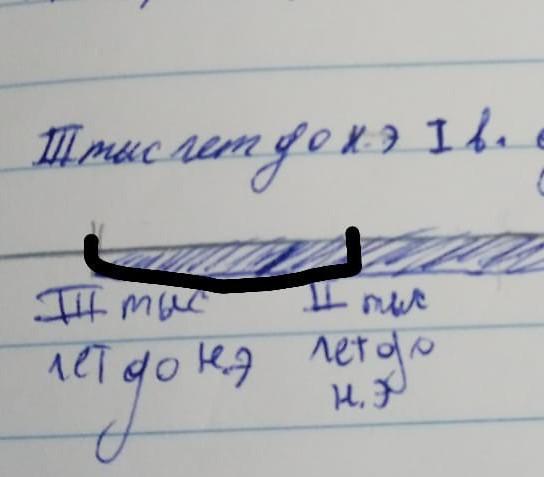 III тыс лет до н.э I в.
III тыс
лет до н.э
II тыс
лет до
н.э